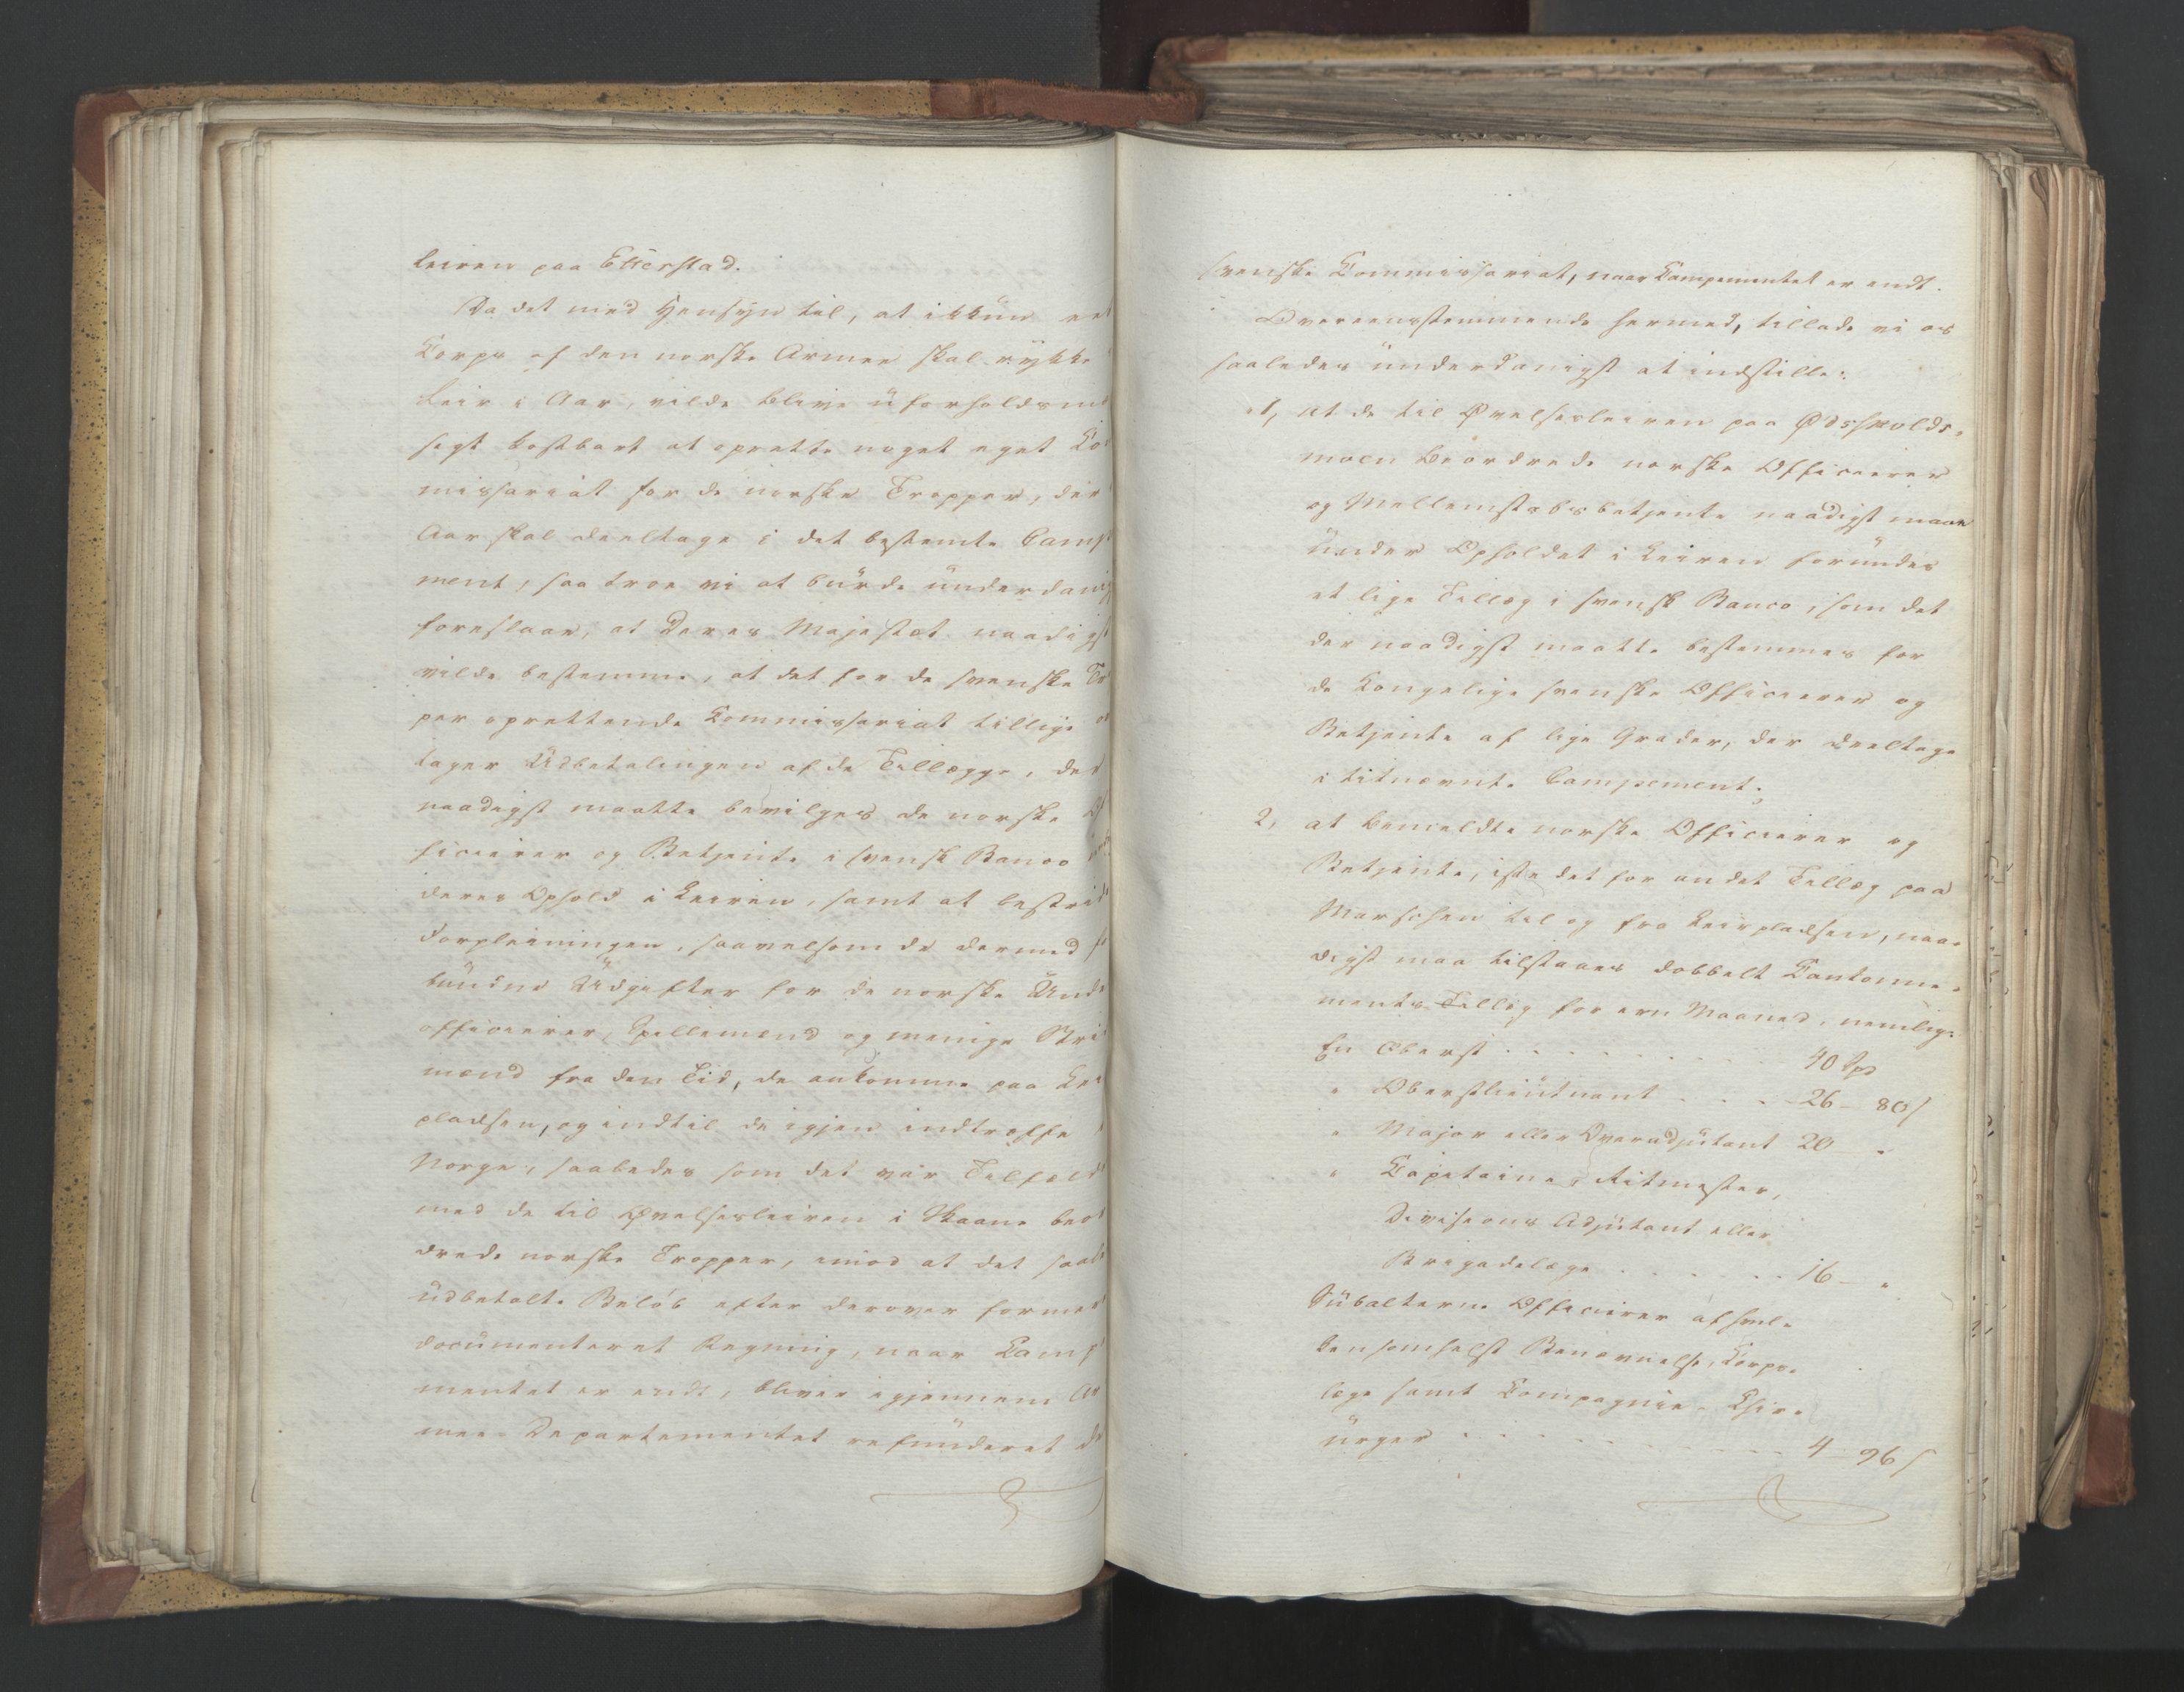 leiren paa Etterstad.
Da det med Hensyn til, at ikkun eet
Corps af den norske Armee skal rykke
Leir i Aar, vilde blive uforholdsmæ
sigt kostbart at oprette noget eget Co
missariat for de norske Tropper, der
Aar skal deeltage i det bestemte Camp
ment, saa troe vi at burde underdanig
foreslaae, at Deres Majestæt naadigst
vilde bestemme, at det for de svenske Tr
per oprettende Commissariat tillige
tager Udbetalingen af de Tillægge, der
naadigst maatte bevilges de norske Of
ficierer og Betjente i svensk Banco
deres Ophold i Leiren, samt at bestrid
Forpleiningen, saavelsom de dermed f
bundne Udgifter for de norske Unde
officierer, Spillemænd og menige Stri
mænd fra den Tid, de ankomme paa Lei
pladsen, og indtil de igjen indtræffe
Norge, saaledes som det var Tilfæld
med de til Øvelsesleiren i Skaane beor
drede norske Tropper, imod at det saal
udbetalte Beløb efter derover forme
documenteret Regning, naar Camp
mentet er endt, bliver igjennem Ar
mee-Departementet refunderet de
svenske Commissariat, naar Campementet er endt.
Overeensstemmende hermed, tillade vi os
saaledes underdanigst at indstille:
1, at de til Øvelsesleiren paa
moen beordrede norske Officierer
og Mellemstabsbetjente naadigst maae
under Opholdet i Leiren forundes
et lige Tillæg i svensk Banco, som det
der naadigst maatte bestemmes for
de Kongelige svenske Officierer og
Betjente af lige Grader, der deeltage
i titnævnte Campement;
2, at bemeldte norske Officierer og
Betjente, istedet for andet Tillæg paa
Marschen til og fra Leirpladsen, naa-
digst maa tilstaaes dobbelt Cantonne-
ments-Tillæg for een Maaned, nemlig:
En Oberst . . . . . . . . 40 Spd
" Oberstlieutnant . . . . 26 - 80 s
" Major eller Overadjutant 20 "
" Capitaine, Ritmester,
Divisions Adjutant eller
Brigadelæge . . . . . . 16 - "
Subalterne Officierer af hvil-
kensomhelst Benævnelse, Corps-
læge samt Compagnie-Chir-
urger . . . . . . . . . . 4 - 96 s